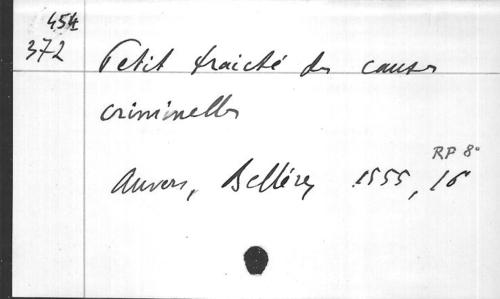 454
372
Petit traicté des causes
criminelles
RP 8°
Anvers, Bellère, 1555, 16°